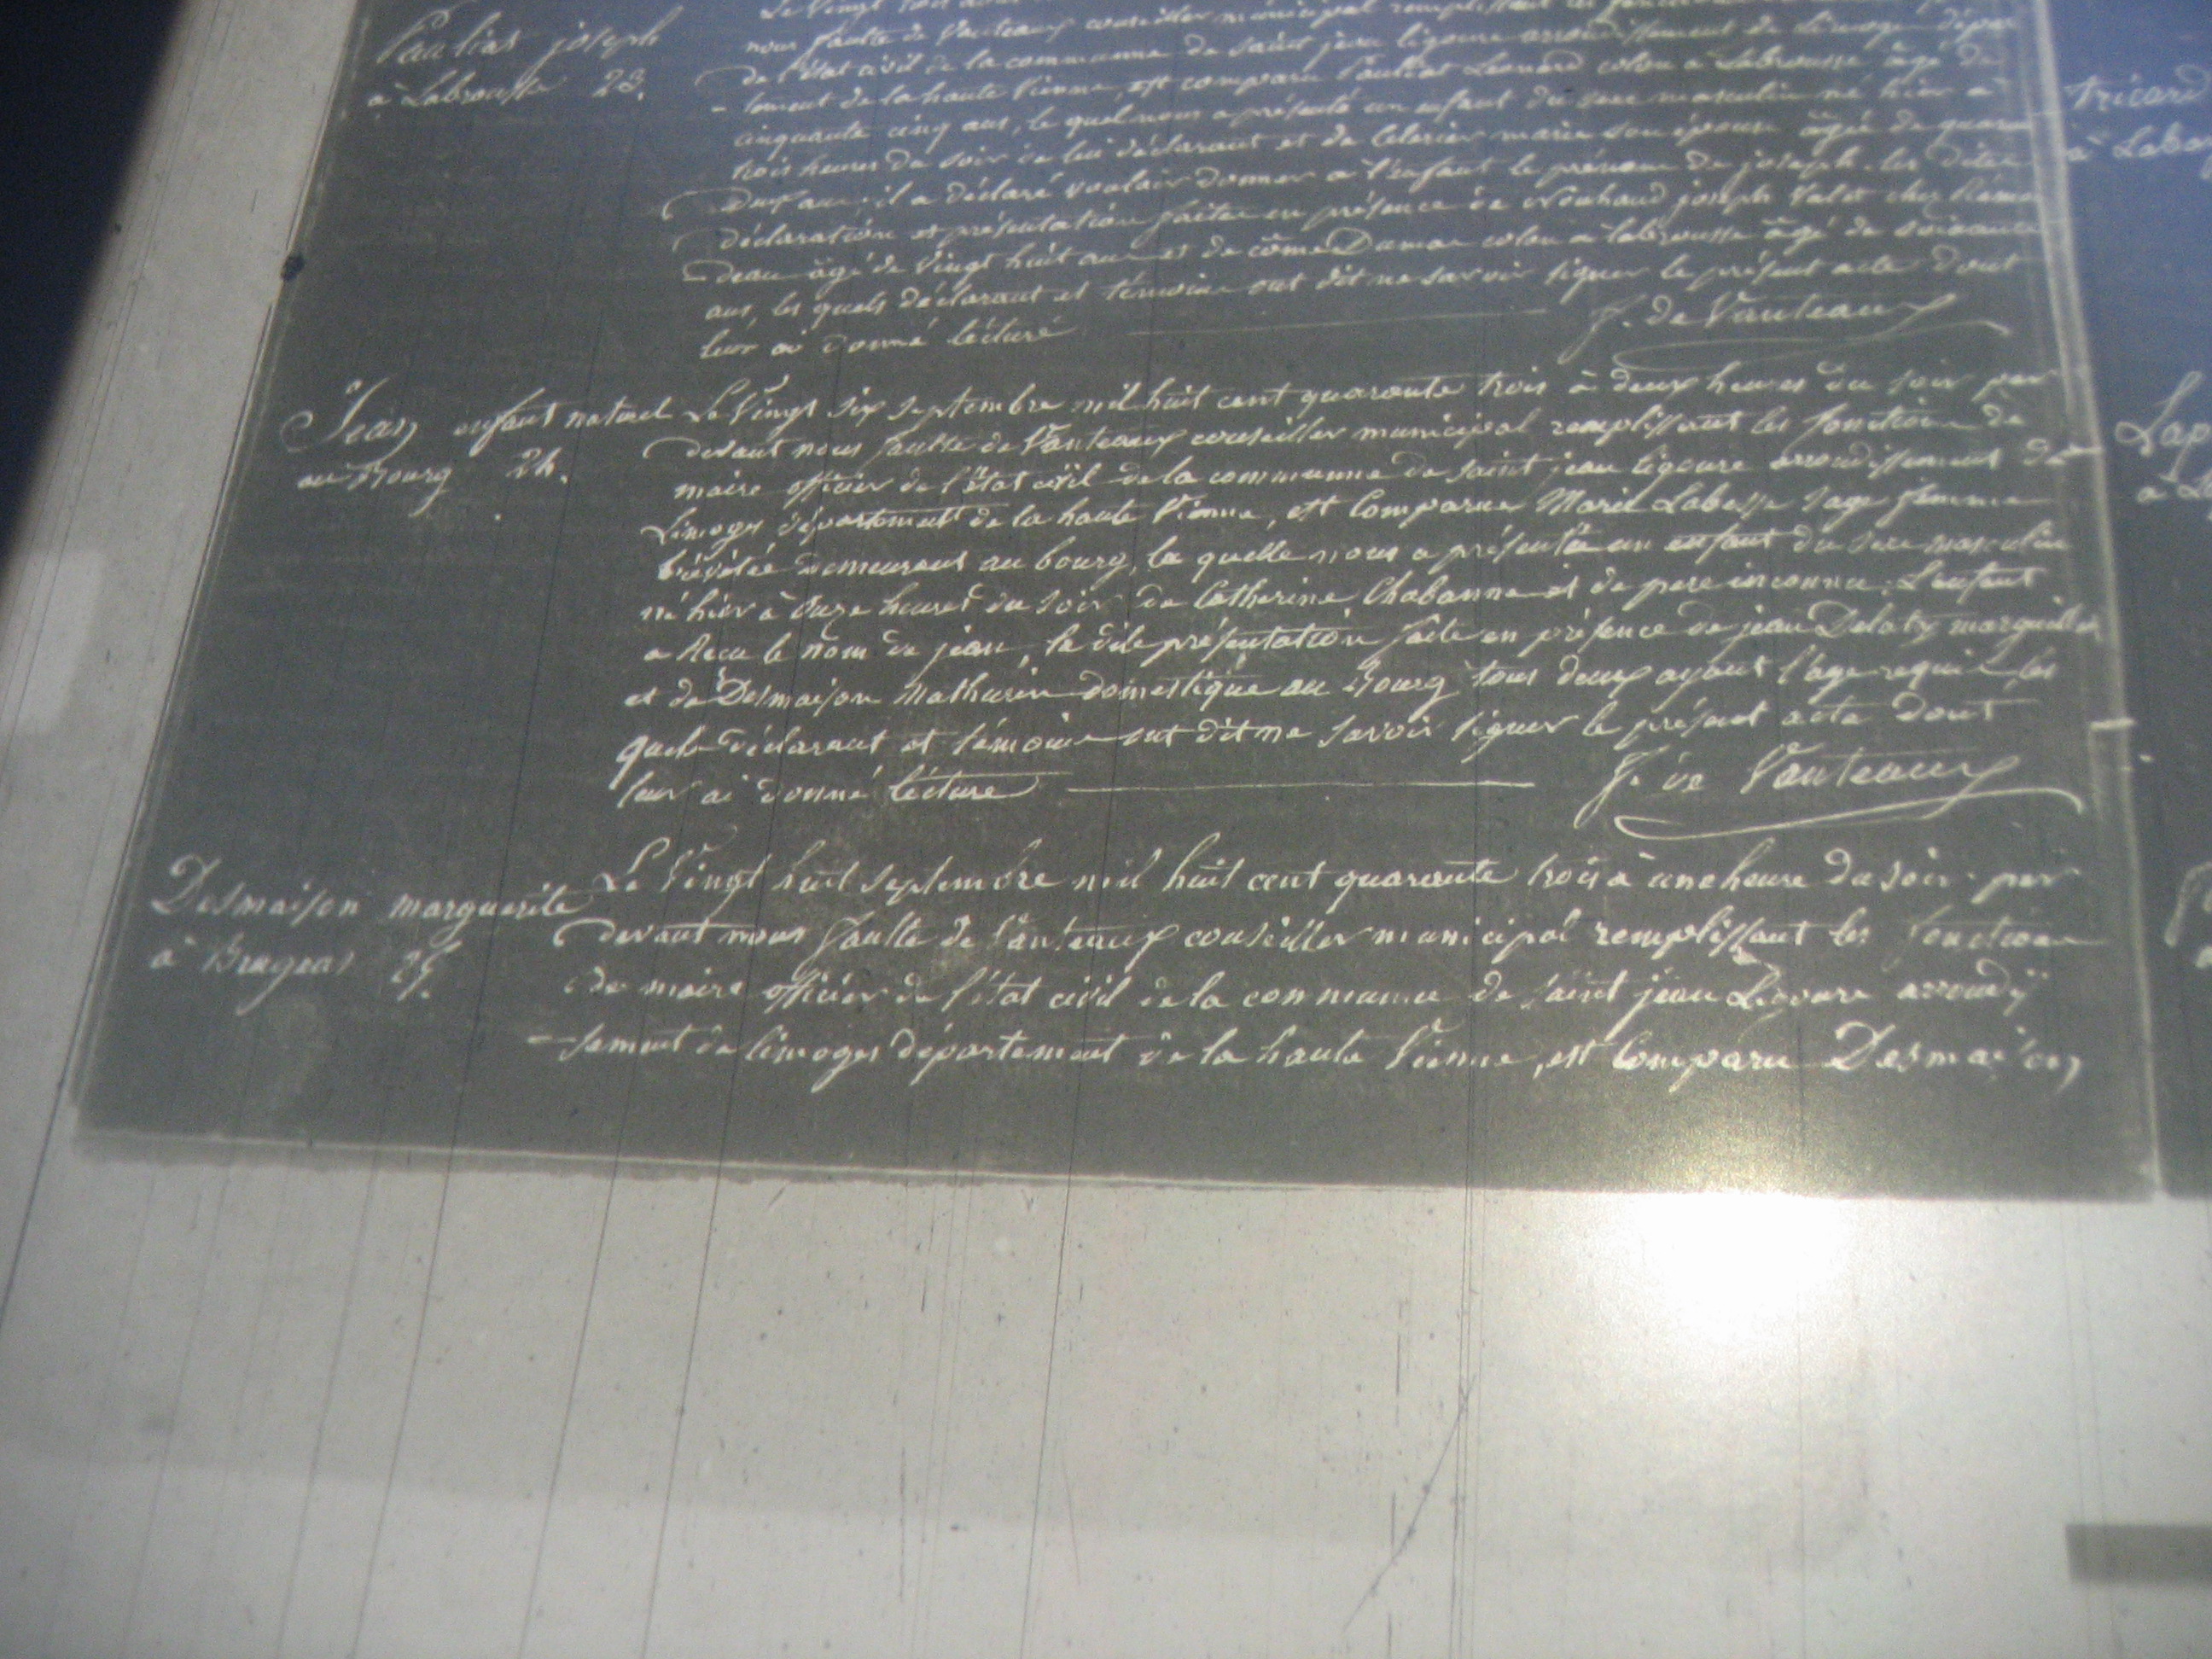 Pauliat joseph
à Labrousse 23.
Le vingt trois
nous faulte de Vanteaux conseiller municipal remplissant les
de l'état civil de la commune de saint jean ligoure arrondissement de Limoges dépar
- tement de la haute Vienne, est comparu Pauliat Léonard colon a Labrousse âgé de
cinquante cinq ans, le quel nous a présenté un enfant du sexe masculin né hier à
trois heures du soir de lui déclarant et de Celerier marie son épouse âgée de quaran
deux ans. il a déclaré vouloir donner a l'enfant le prénom de joseph. les dites
déclaration et présentation faites en présence de Nouhaud joseph valet chez
- deau âgé de vingt huit ans et de côme Dumas colon a labrousse âgé de soixante
ans, les quels déclarant et témoins ont dit ne savoir signer le présent acte dont
leur ai donné lécture
f. de Vanteaux
Jean enfant naturel
au Bourg 24.
Le vingt six septembre mil huit cent quarante trois à deux heures du soir par
devant nous faulte de Vanteaux conseiller municipal remplissant les fonctions de
maire officier de l'état civil de la commune de saint jean ligoure arrondissement de
Limoges département de la haute Vienne, est Comparue Marie Labesse sage femme
brévetée demeurant au bourg, la quelle nous a présenté un enfant du sexe masculin
né hier à onze heures du soir de Catherine Chabanne et de pere inconnu. L'enfant
a Recu le nom de jean, la dite présentation faite en présence de jean Delaty marguillier
et de Desmaison Mathurin domestique au Bourg tous deux ayant l'age requis, les
quels déclarant et témoins ont dit ne savoir signer le présent acte dont
leur ai donné lécture
f. de Vanteaux
Desmaison marguerite
à Brugeas 25.
Le Vingt huit septembre mil huit cent quarante trois à une heure du soir par
devant nous faulte de Vanteaux conseiller municipal remplissant les fonctions
de maire officier de l'état civil de la commune de saint jean Ligoure arrondis
- sement de limoges département de la haute Vienne, est Comparu Desmaison
tricard
à Labo
Lap
à L